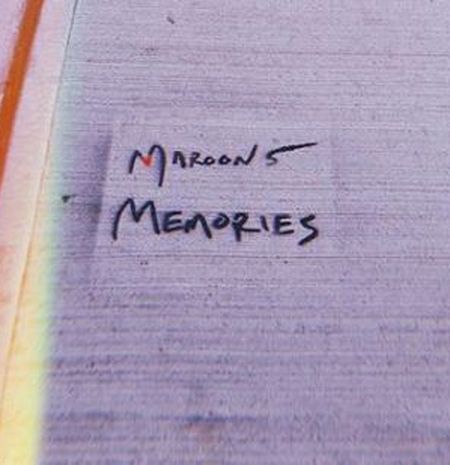 MAROON 5
MEMORIES